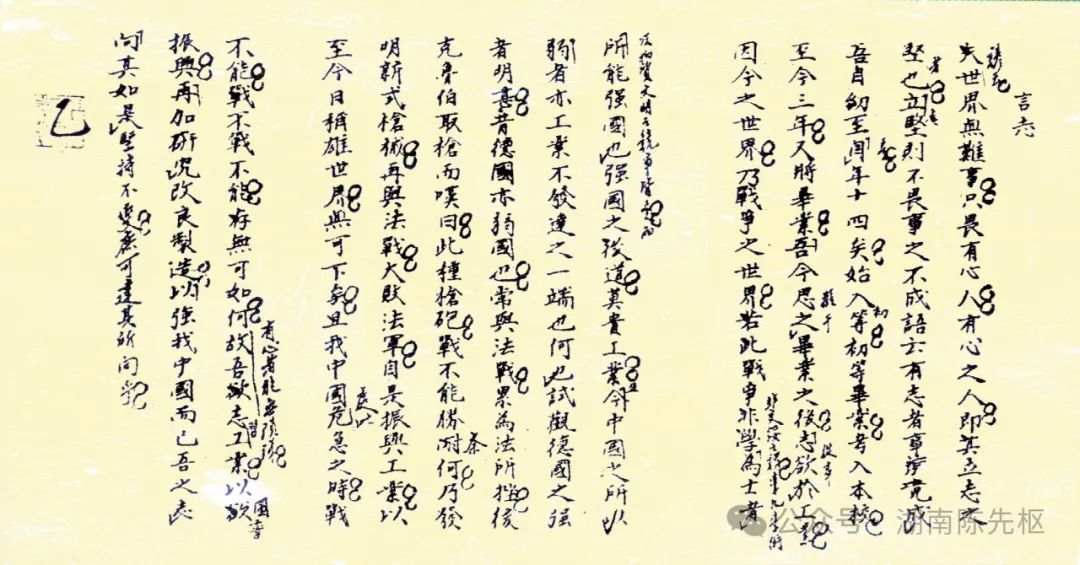 言志
夫世界無難事只畏有心人有心之人即其立志之
堅也立堅則不畏事之不成語云有志者事竟成
吾自幼至今年十四矣始入等初等畢業考入本校
至今三年又將畢業吾今思之畢業之後志欲於工
因今之世界乃戰爭之世界若此戰爭非學為士者
所能强國也强國之後道莫貴工業今中國之所以
弱者亦工業不發達之一端也何也試觀德國之强
者明甚昔德國亦弱國也常與法戰累為法所挫後
克魯伯取槍而嘆曰此種槍砲戰不能勝耐何乃發
明新式槍械再與法戰大敗法軍自是振興工業以
至今日稱雄世界無可下矣且我中國危急之時戰
不能戰不戰不能存無可如何故吾欲志工業以救
振興再加研究改良製造以强我中國而已吾之志
向其如是堅持不變庶可達其所向
乙
公众号·湖南陈先枢